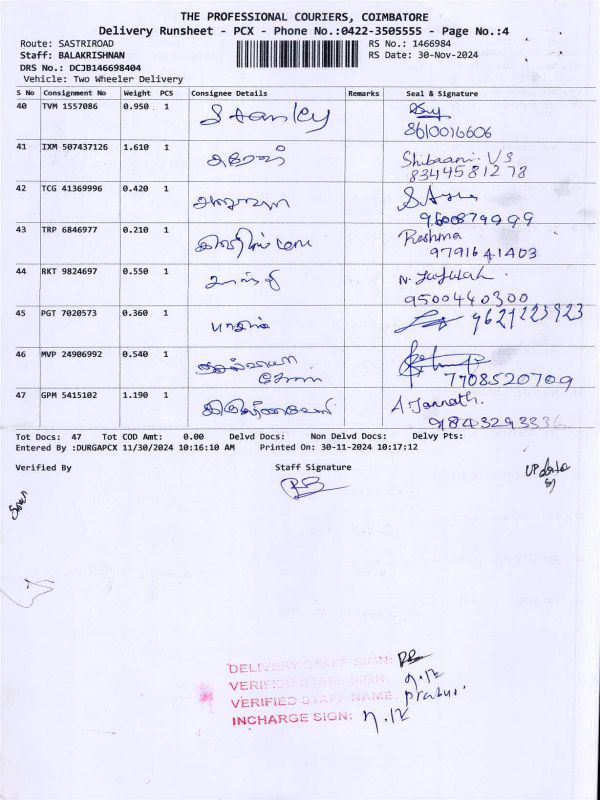 THE PROFESSIONAL COURIERS, COIMBATORE
Delivery Runsheet - PCX - Phone No.:0422-3505555 - Page No.:4
Route: SASTRIROAD RS No.: 1466984
Staff: BALAKRISHNAN RS Date: 30-Nov-2024
DRS No.: DCJB146698404
Vehicle: Two Wheeler Delivery
S No Consignment No Weight PCS Consignee Details Remarks Seal & Signature
40 TVM 1557086 0.950 1 Stanley
8610016606
41 IXM 507437126 1.610 1 Shibaani VS
8344581278
42 TCG 41369996 0.420 1
9600879999
43 TRP 6846977 0.210 1 Reshma
9791641403
44 RKT 9824697 0.550 1
9500440300
45 PGT 7020573 0.360 1 9621223923
46 MVP 24906992 0.540 1
7708520709
47 GPM 5415102 1.190 1 A. Jannath.
91843293336
Tot Docs: 47 Tot COD Amt: 0.00 Delvd Docs: Non Delvd Docs: Delvy Pts:
Entered By :DURGAPCX 11/30/2024 10:16:10 AM Printed On: 30-11-2024 10:17:12
Verified By Staff Signature
DELIVERY STAFF SIGN:
VERIFIED STAFF SIGN:
VERIFIED STAFF NAME:
INCHARGE SIGN: